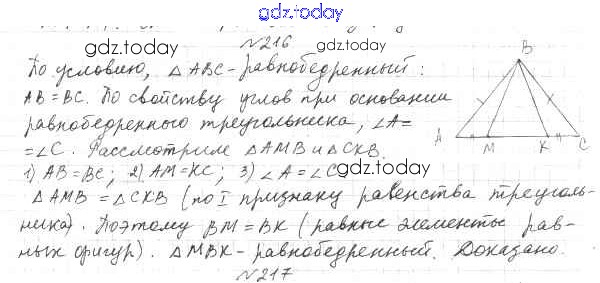 gdz.today
№216
gdz.today gdz.today
По условию, △ABC - равнобедренный:
AB = BC. По свойству углов при основании
равнобедренного треугольника, ∠A =
= ∠C. Рассмотрим △AMB и △CKB
1) AB = BC; 2) AM = KC; 3) ∠A = ∠C
gdz.today gdz.today
△AMB = △CKB (по I признаку равенства треуголь-
ника). Поэтому BM = BK (равные элементы рав-
ных фигур). △MBK - равнобедренный. Доказано.
gdz.today gdz.today
№217
B
A M K C